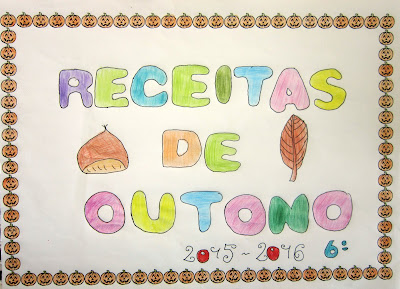 RECEITAS
DE
OUTONO
2015 ~ 2016 6º